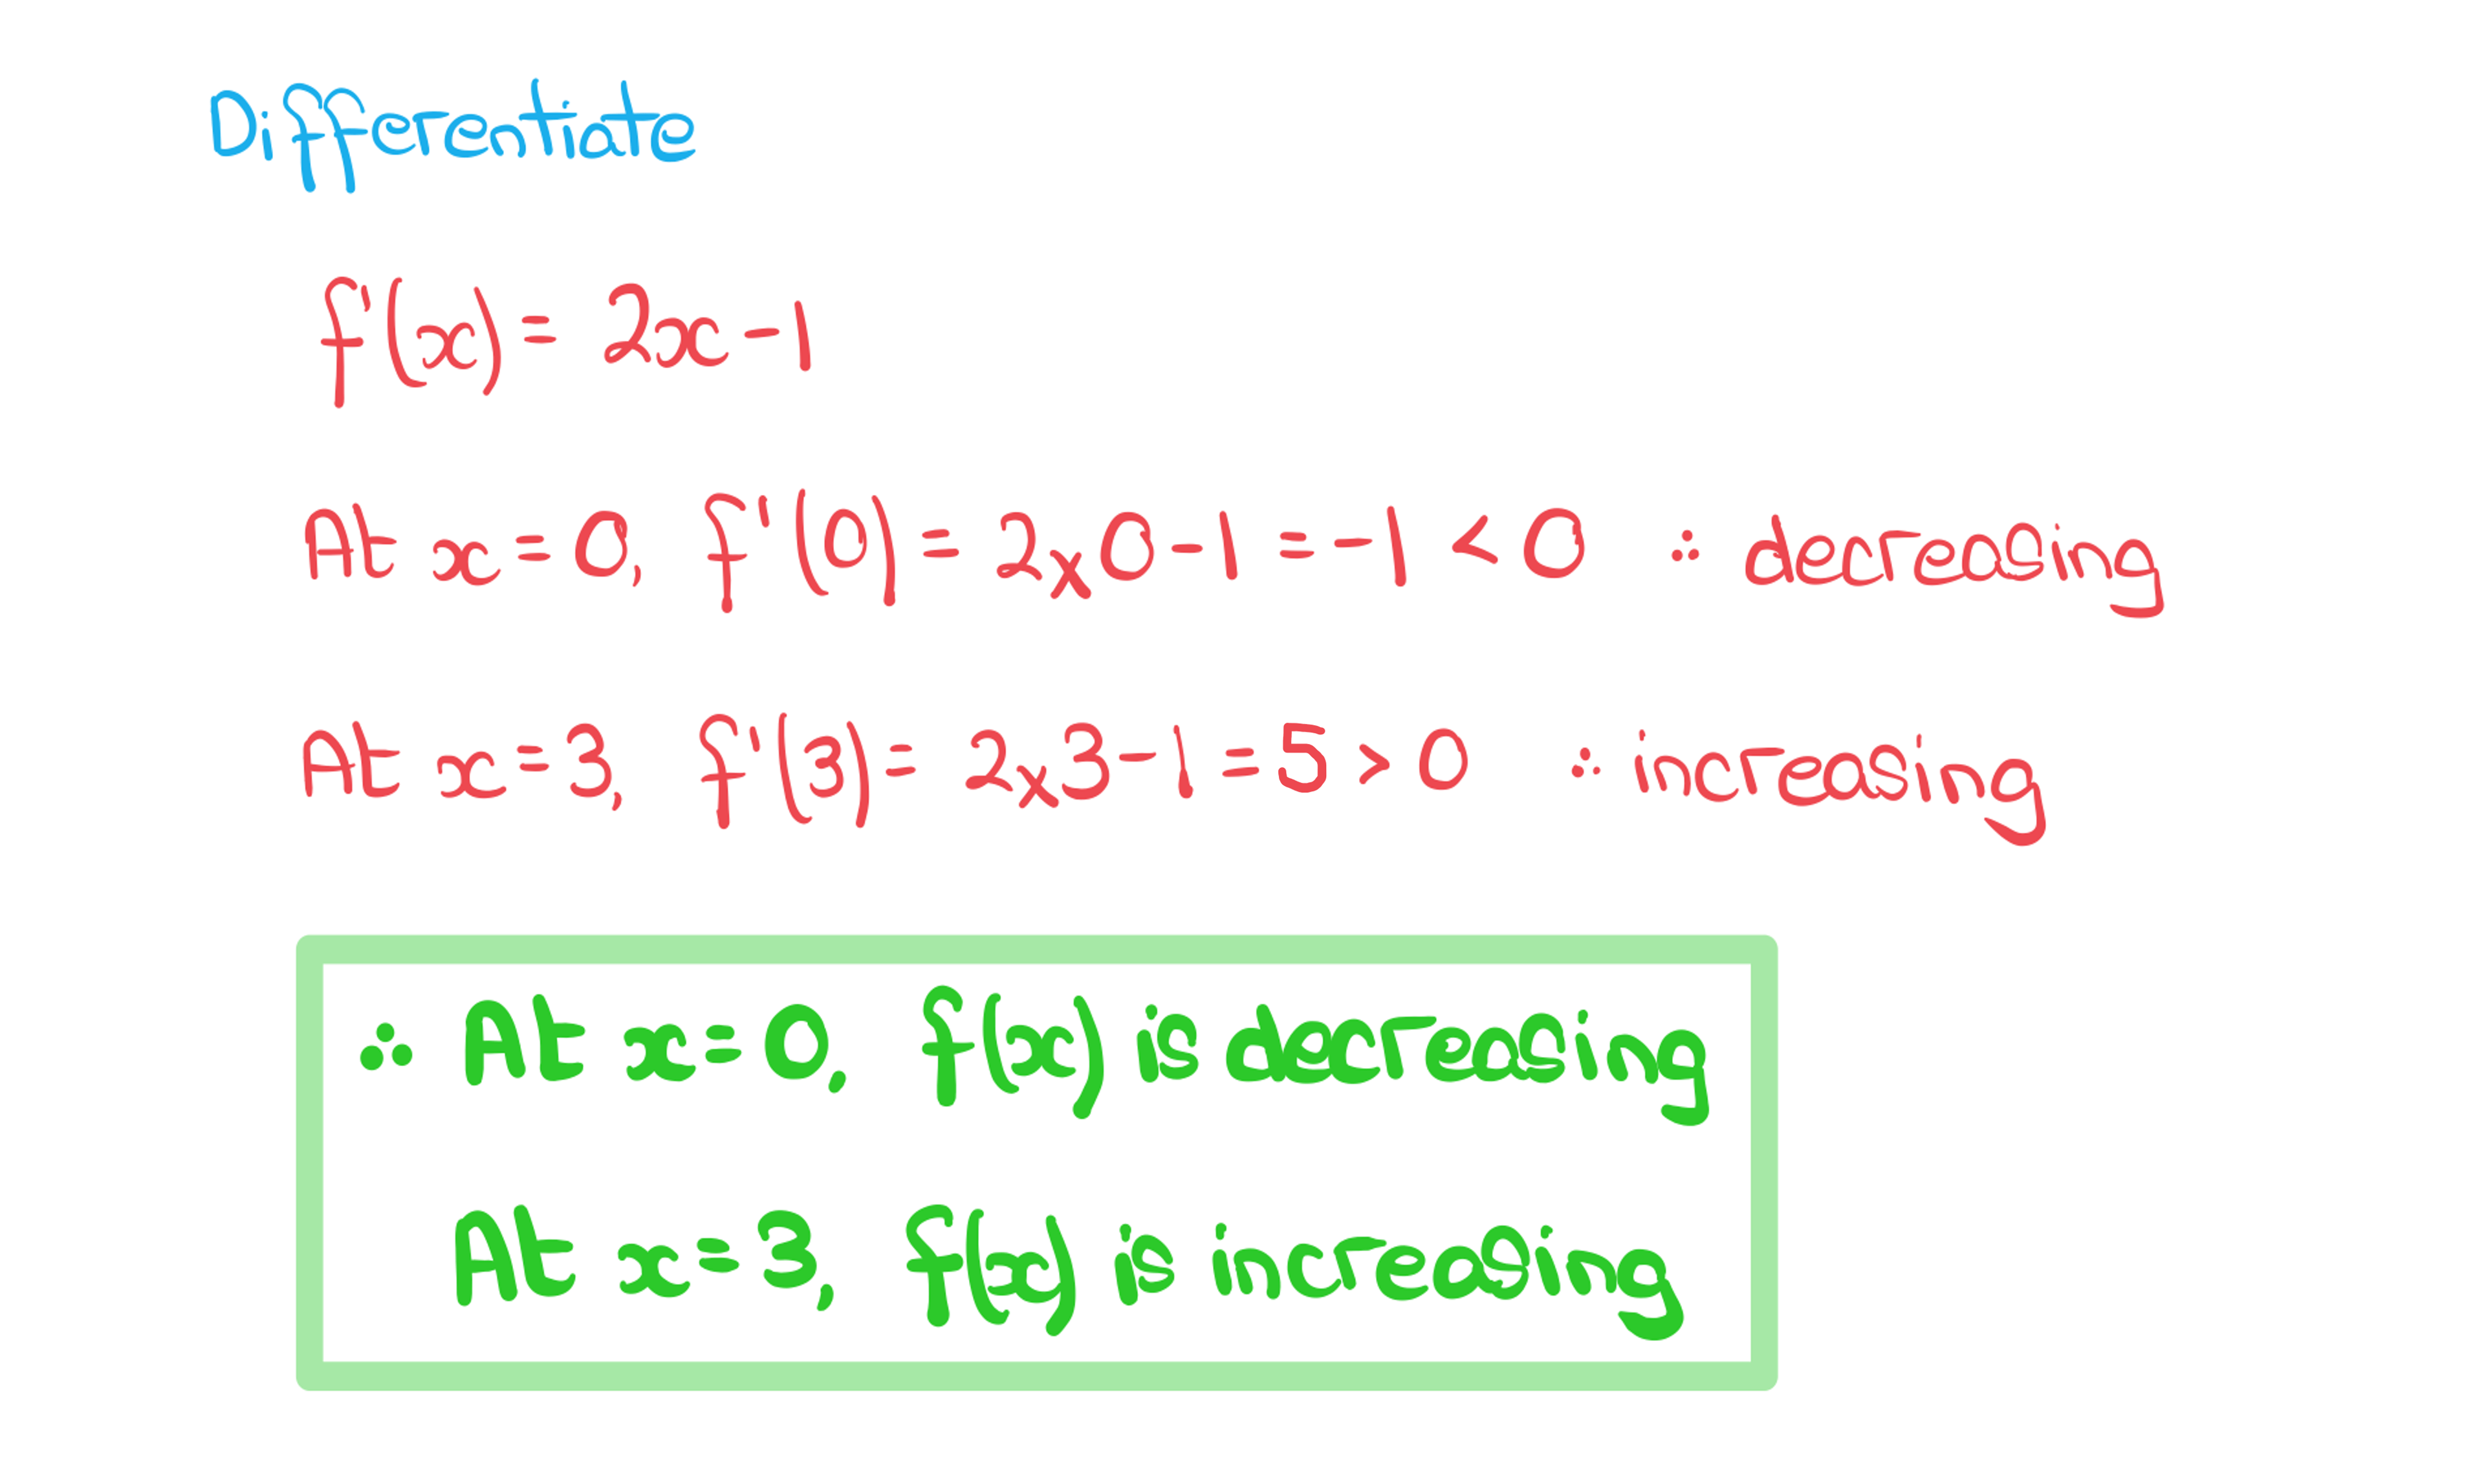 Differentiate
f'(x) = 2x - 1
At x = 0, f'(0) = 2x0 - 1 = -1 < 0 ∴ decreasing
At x = 3, f'(3) = 2x3 - 1 = 5 > 0 ∴ increasing
∴ At x = 0, f(x) is decreasing
At x = 3, f(x) is increasing